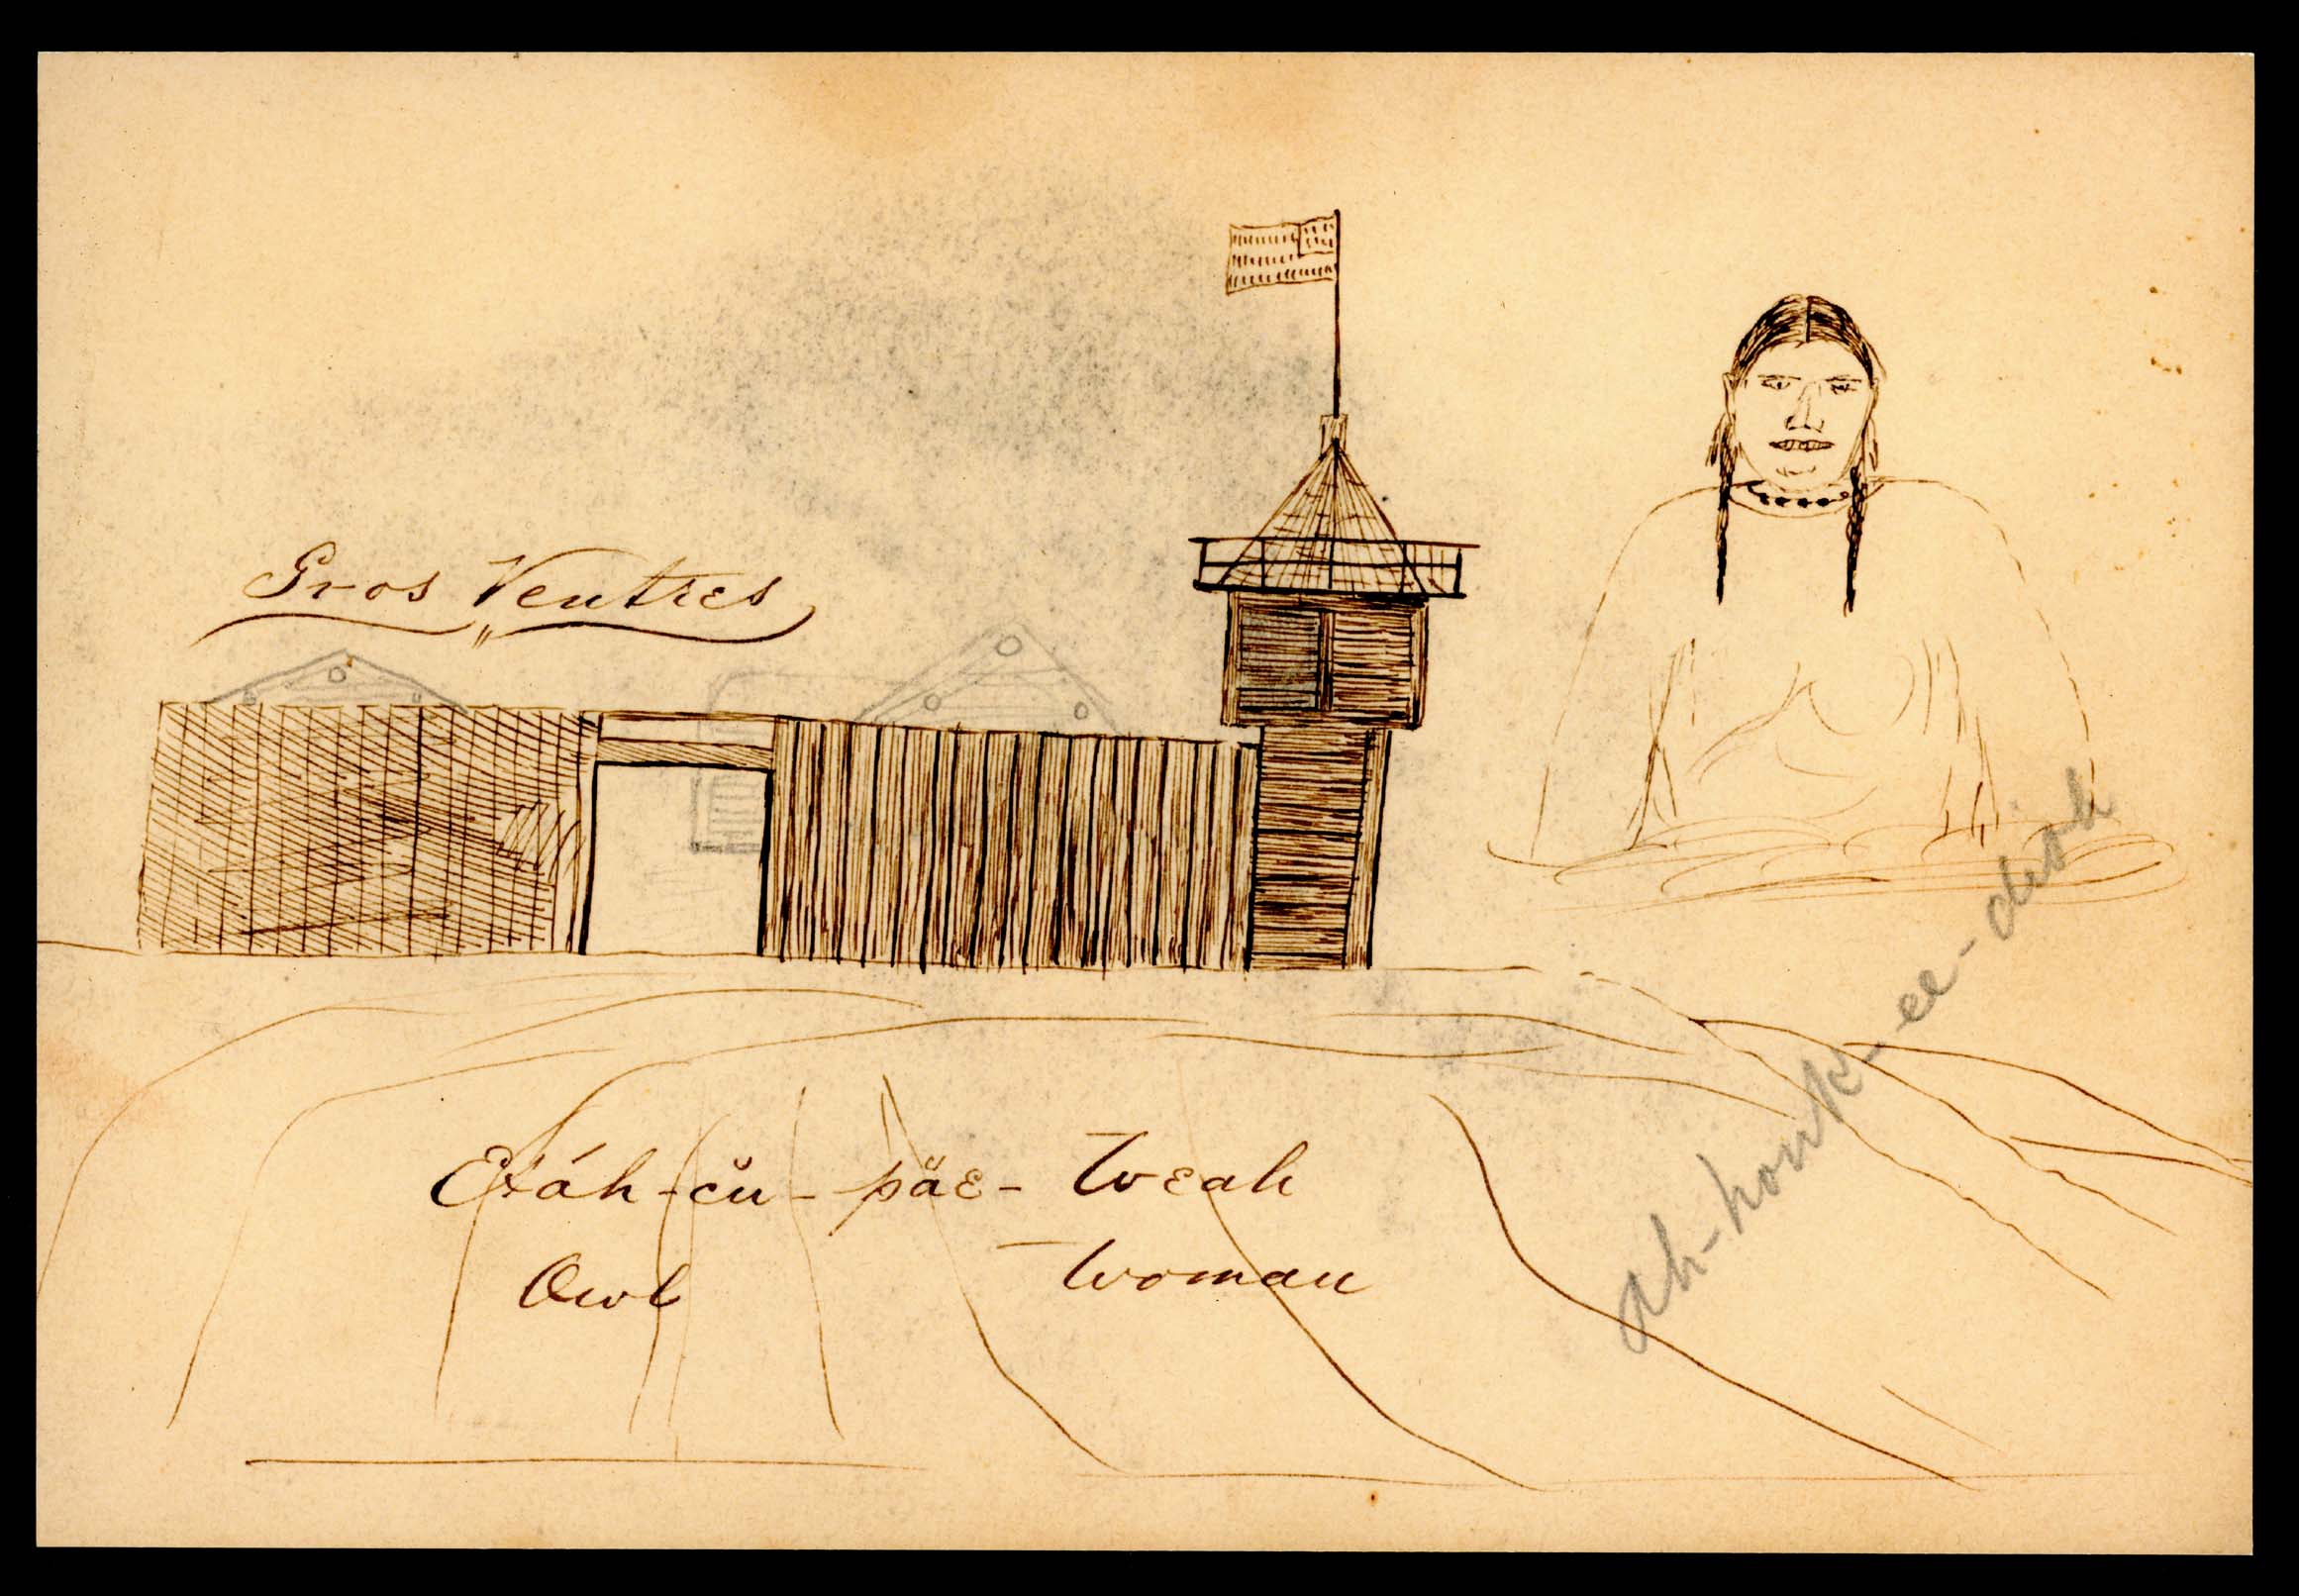 Gros Ventres
Etáh-cŭ-päe-Weah
Owl Woman
ah-honk-ee-dish